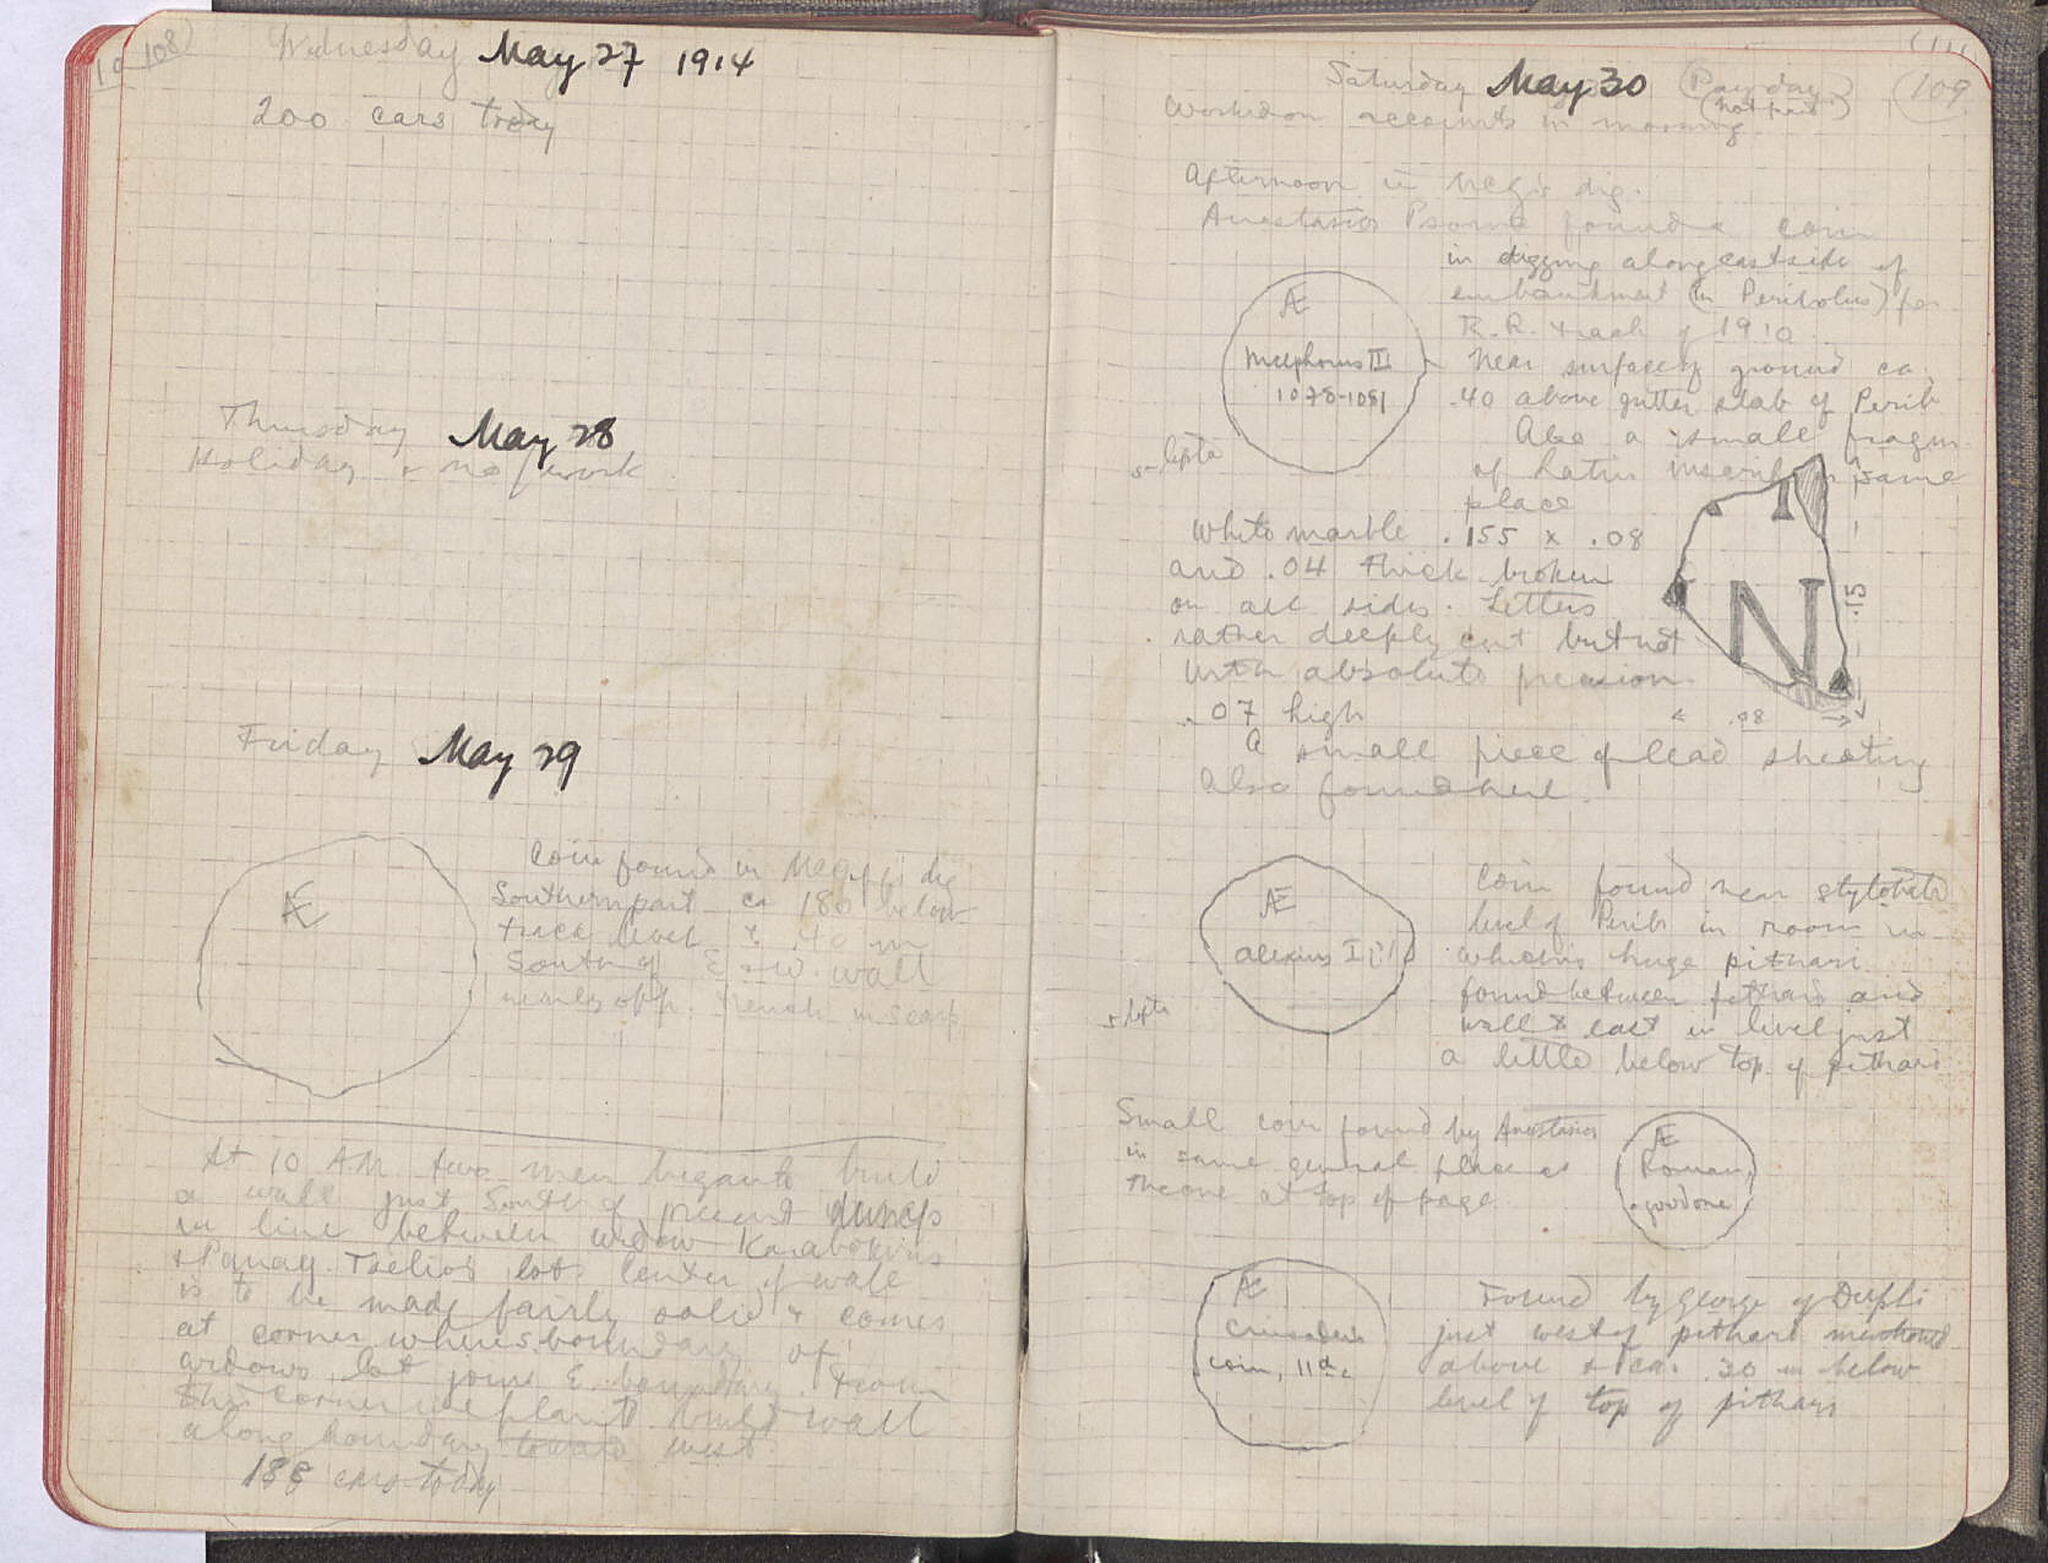 108
Wednesday May 27 1914
200 cars today
Thursday May 28
Holiday & no work
Friday May 29
Æ
Coin found in Meg's dig
Southern part ca 180 below
track level & .40 m
South of E & W. wall
nearly opp. trench in scarp
At 10 A.M. two men began to build
a wall just South of present dumps
in line between widow
lot. Center of wall
is to be made fairly solid & comes
at corner where S. boundary of
widows lot joins E. boundary. From
this corner we plan to build wall
along boundary toward west.
188 cars today
109
Saturday May 30 (Pay day
(not paid)
Worked on accounts in morning
Afternoon in Meg's dig.
Anastasios found a coin
in digging along east side of
embankment (in Peribolus) for
R.R. track of 1910
Near surface of ground ca.
.40 above gutter slab of Perib
Æ
Nicephorus III
1078-1081
5 lepta
Also a small fragm
of Latin inscrib same
place
White marble .155 x .08
and .04 thick broken
on all sides. Letters
rather deeply cut but not
with absolute precision.
.07 high
N
.15
.08
A small piece of lead sheeting
also found here.
Æ
Alexius I (?)
5 lepta
Coin found near stylobate
level of Perib in room in
which is huge pithari
found between pithari and
wall to east in level just
a little below top of pithari
Small coin found by Anastasios
in same general place as
the one at top of page
Æ
Roman,
a good one
Æ
Crusader's
coin, 11th c
Found by George of Delphi
just west of pithari mentioned
above & ca. .30 m below
level of top of pithari